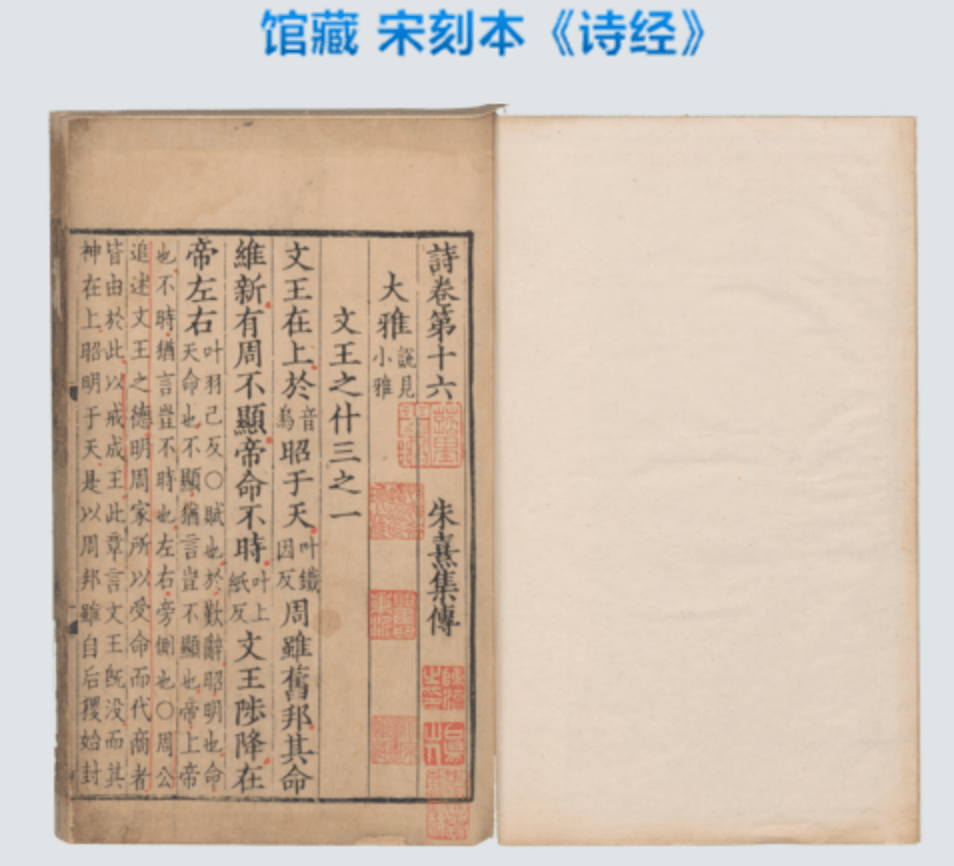 馆藏 宋刻本《诗经》
詩卷第十六 朱熹集傳
大雅 說見小雅
文王之什三之一
文王在上於音烏昭于天叶鐵因反周雖舊邦其命
維新有周不顯帝命不時叶上紙反文王陟降在
帝左右叶羽己反○賦也於歎辭昭明也命
天命也不顯猶言豈不顯也帝上帝
也不時猶言豈不時也左右旁側也○周公
追述文王之德明周家所以受命而代商者
皆由於此以戒成王此章言文王既沒而其
神在上昭明于天是以周邦雖自后稷始封